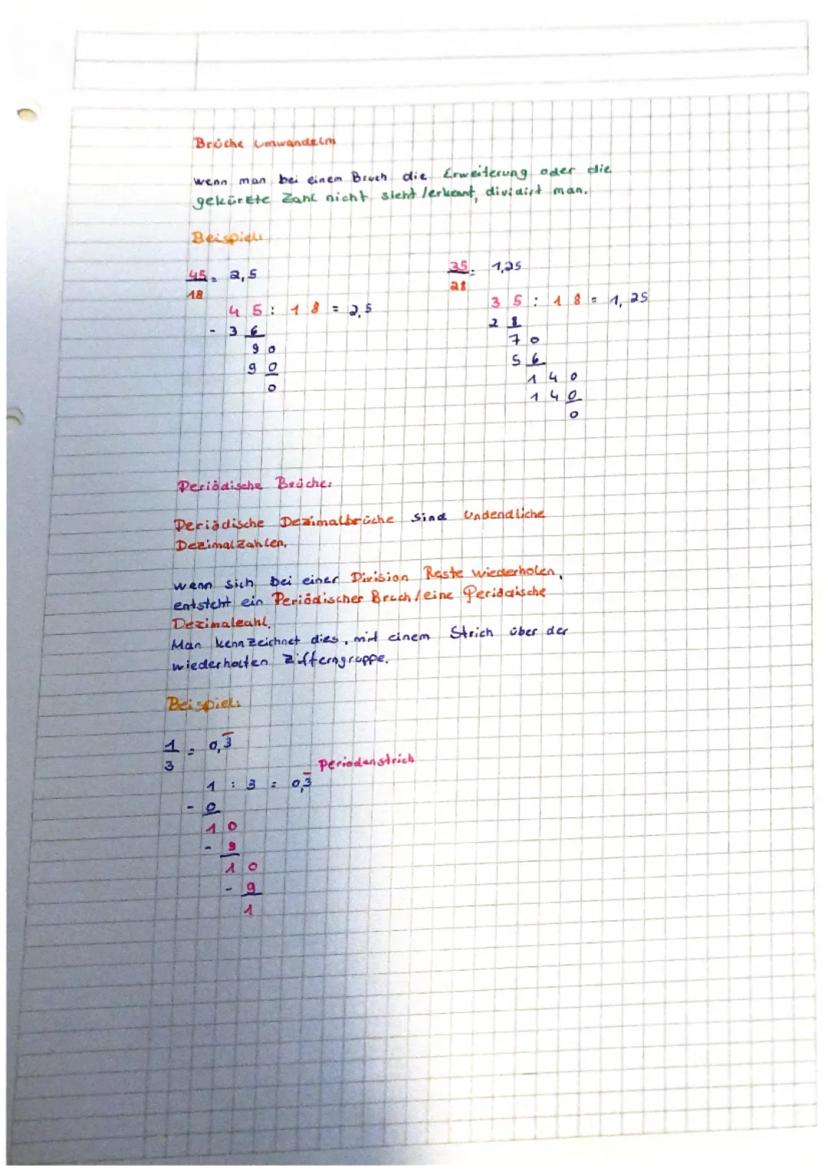 Brüche Umwandeln
wenn man bei einem Bruch die Erweiterung oder die
gekürzte Zahl nicht sieht/erkent, dividirt man.
Beispiel:
45 = 2,5
18
45 : 18 = 2,5
- 36
90
90
0
35 = 1,25
28
35 : 18 = 1,25
28
70
56
140
140
0
Periodische Brüche:
Periodische Dezimalbrüche sind Undendliche
Dezimalzahlen.
wenn sich bei einer Division Reste wiederholen,
entsteht ein Periodischer Bruch/eine Periodische
Dezimalzahl.
Man kennzeichnet dies, mit einem Strich über der
wiederholten Zifferngruppe.
Beispiel:
1 = 0,3̅
3
Periodenstrich
1 : 3 = 0,3̅
- 0
10
- 9
10
- 9
1